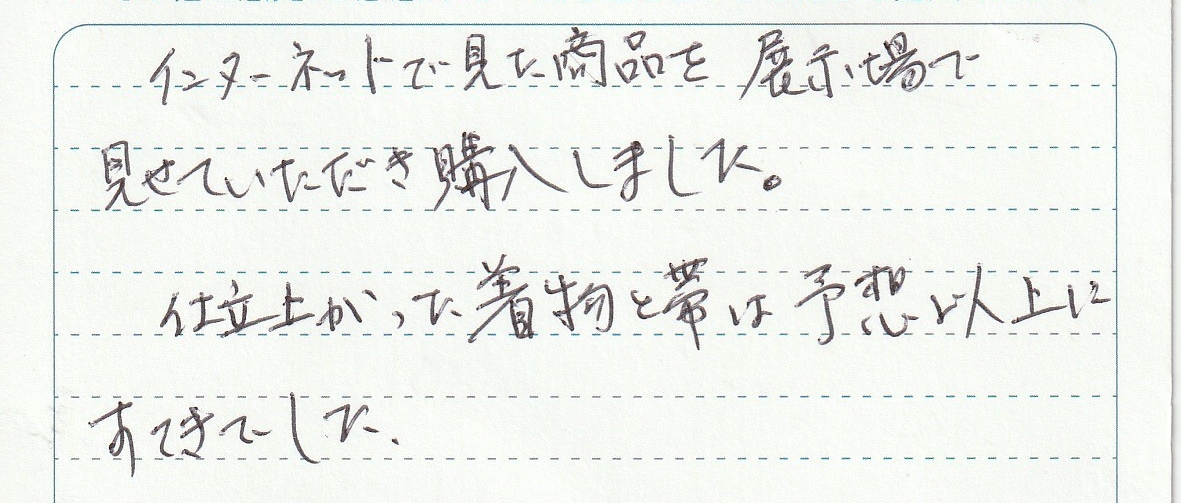 インターネットで見た商品を展示場で
見せていただき購入しました。
仕立上がった着物と帯は予想以上に
すてきでした、